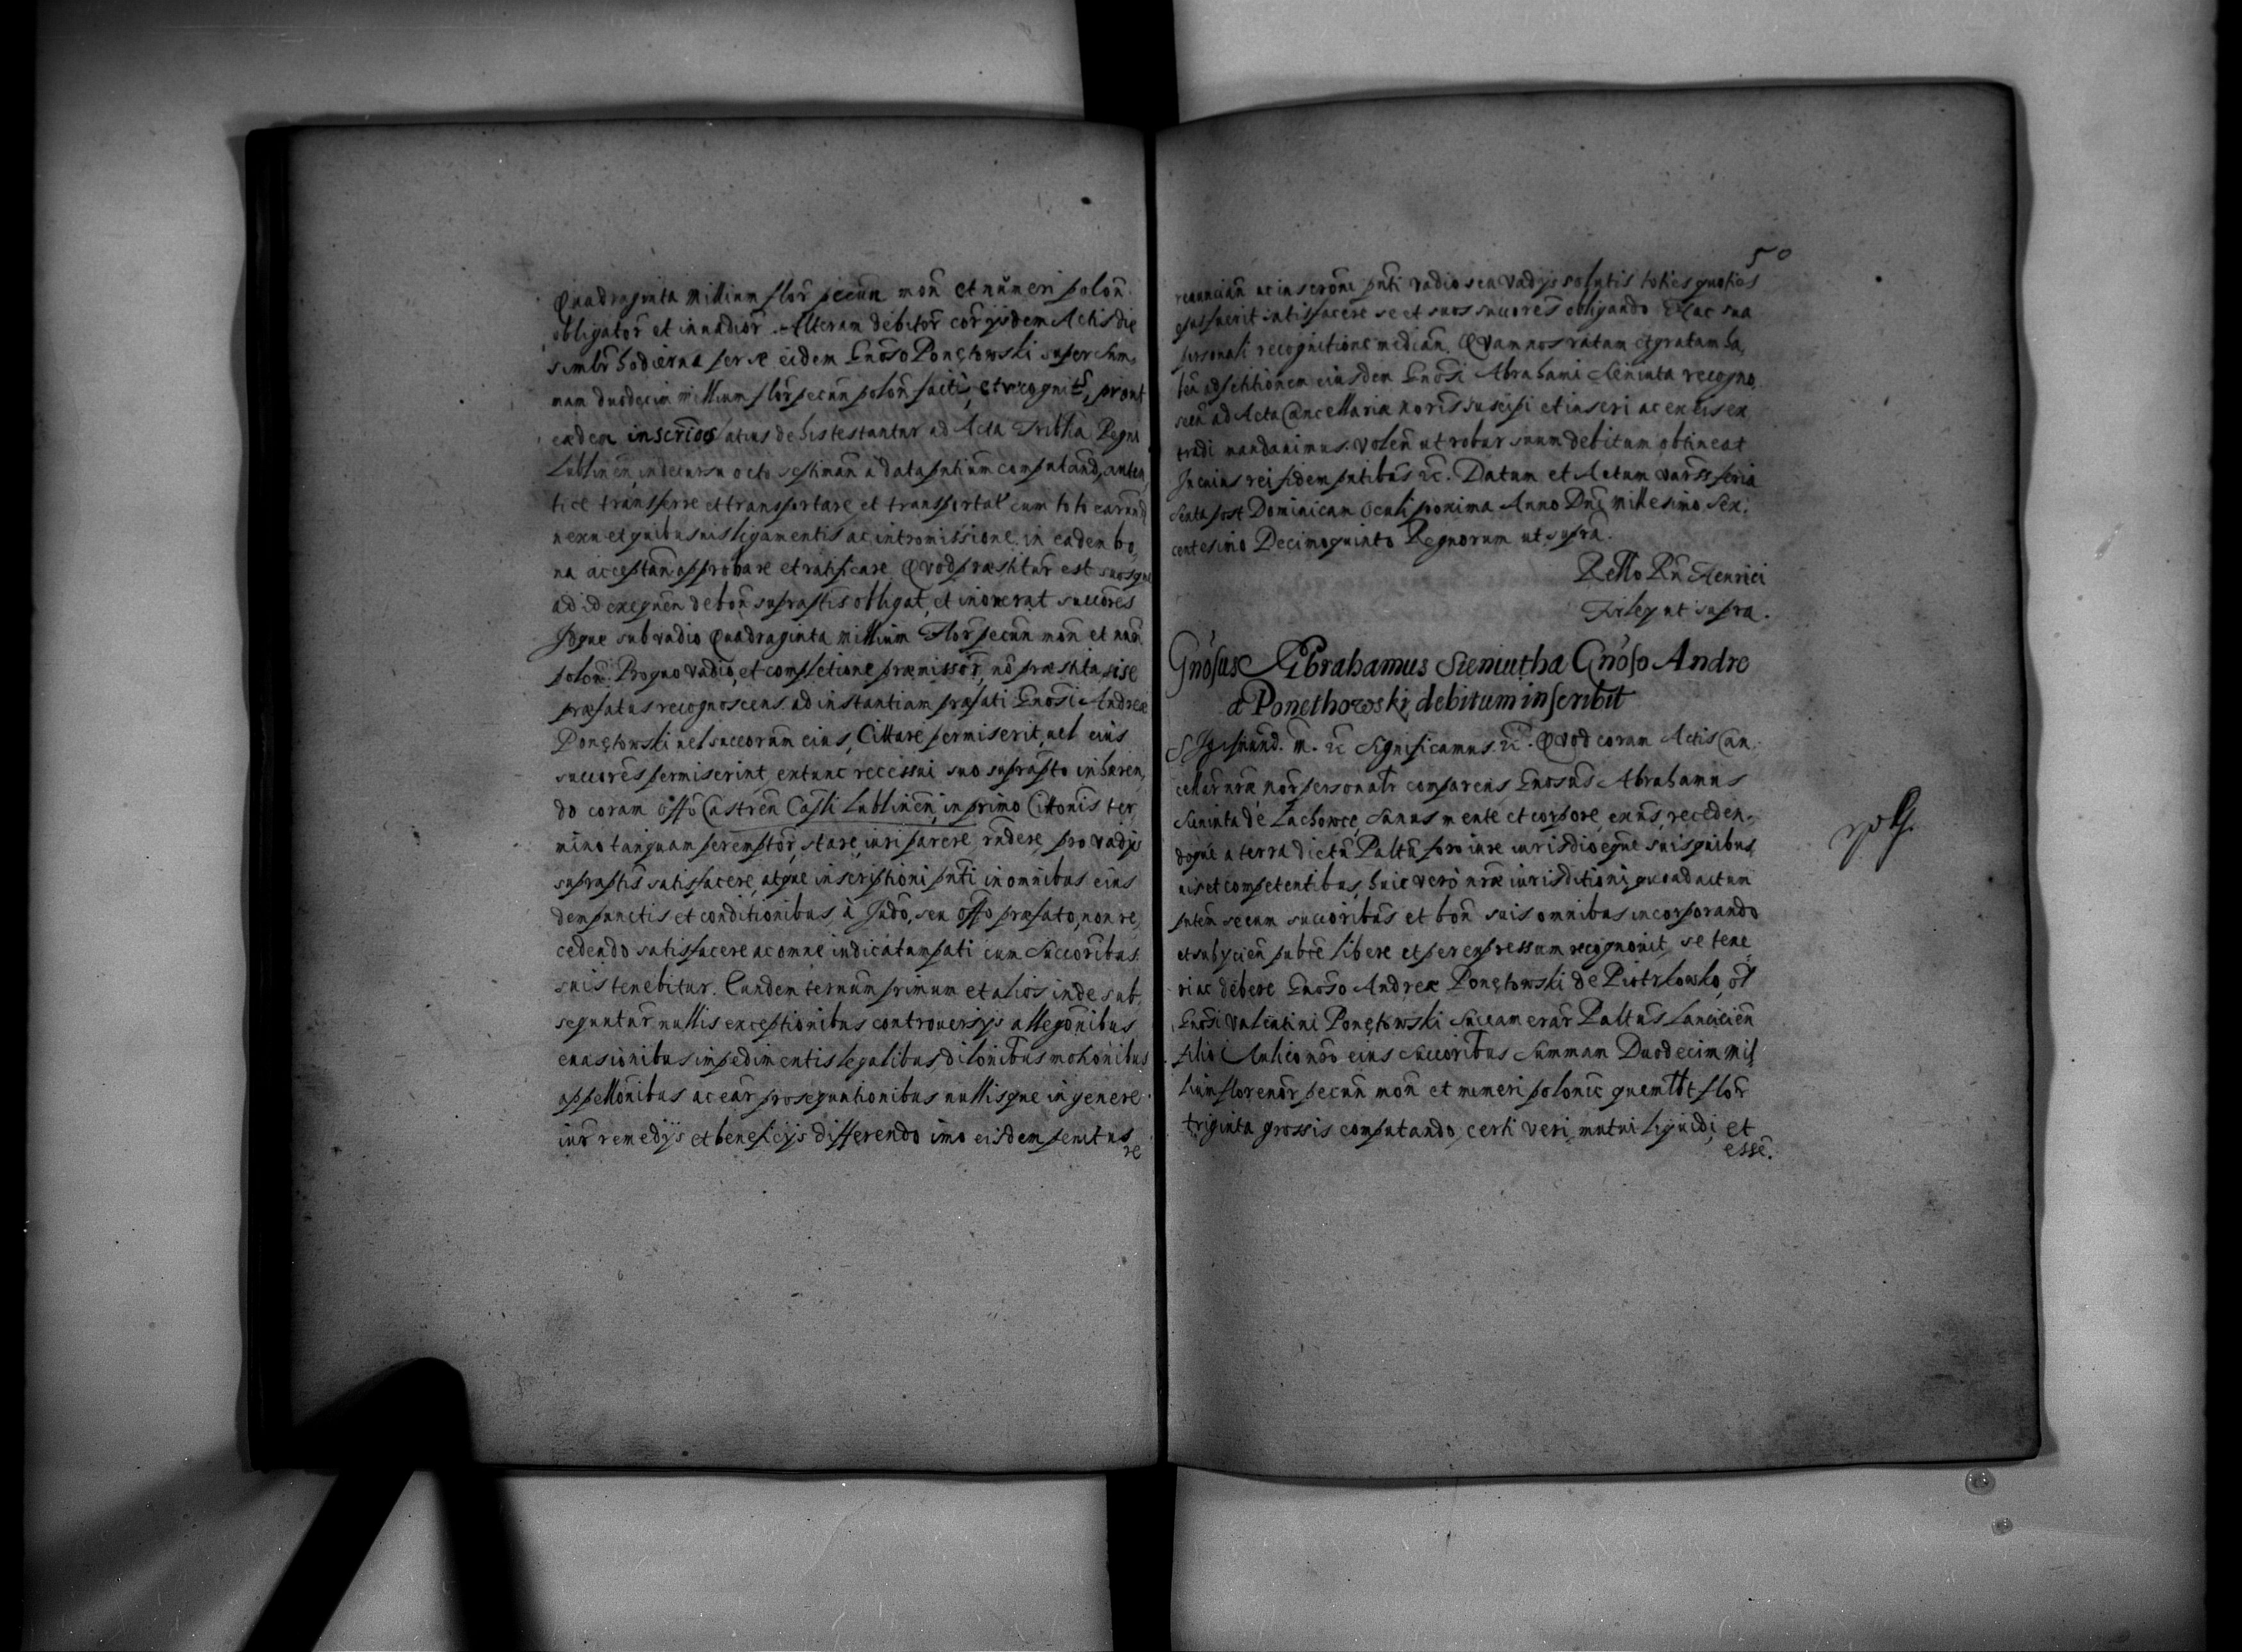 Quadraginta Millium flor pecun mon et numeri polon
obligator et inuadior. Alteram debitor cor ijsdem Actis die
simlr hodierna per se eidem Gnoso Ponętowski super Sum,
mam duodecim Millium flor pecun polon factis, et recognitis, prout
eædem inscrios latius de his testantur ad Acta Tribtia Regni
Lublinen, in decursu octo septiman à data pntium computand, auten,
tice transferre et transportare et transportat cum toto earund
nexu et quibusuis ligamentis ac intromissione in eadem bo,
na acceptan approbare et ratificare Quod præstitur est suosque
ad id exequen de bon suprastis obligat, et inonerat succores
Idque sub vadio Quadraginta Millium Flor pecun mon et num
polon. Pro quo vadio, et completione præmissor, no præstita, si se
præfatus recognoscens ad instantiam præfati Gnosi Andreæ
Ponętowski uel succorum eius, Cittare permiserit, uel eius
succores permiserint, extunc recessui suo suprasto inhæren,
do coram Offo Castren Capli Lublinen, in primo Cittonis ter,
mino tanquam peremptor, stare, iuri parere, rndere, pro vadys
suprastis satisfacere, atque inscriptioni pnti in omnibus eius
dem punctis et conditionibus, à Judo, seu Offo præfato, non re,
cedendo satisfacere ac omne iudicatum pati cum Succoribus
suis tenebitur. Eundem termum primum et alios inde sub
sequntur nullis exceptionibus controuersys allegonibus
euasionibus impedimentis legalibus, dilonibus motionibus
appellonibus ac ear prosequutionibus nullisque in genere
iur remedijs et beneficijs differendo imo eisdem penitus
re
50
renuncian ac inscroni pnti vadio seu vadys solutis toties quoties
opus fuerit satisfacere se et suos succores obligando Hac sua
personali recognitione median. Quam nos ratam et gratam ha,
ben ad petitionem eiusdem Gnosi Abrahami Sieniuta recogno,
scen ad Acta Cancellariæ noris suscipi et inseri ac ex eis ex,
tradi mandauimus. volen ut robur suum debitum obtineat
In cuius rei fidem pntibus &c. Datum et Actum Varss feria
sexta post Dominicam Oculi proxima Anno Dni Millesimo Sex,
centesimo Decimoquinto Regnorum ut supra.
Rello Rn Henrici
Firley ut supra.
Gnosus Abrahamus Sieniutha Gnoso Andre
æ Ponethowski debitum inscribit
Sigismund. m. &c Significamus &c. Quod coram Actis Can,
cellær nræ nor personalr comparens Gnosus Abrahamus
Sieniuta de Lachowce, Sanus mente et corpore, exns, receden,
doque a terra dictu Paltu foro iure iurisdioeque suis quibus
uis et competentibus, huic vero nræ iurisdictioni, quoad actum
pntem se cum succoribus et bon suis omnibus incorporando
et subycien pubce libere et per expressum recognouit, se tene
ri ac debere Gnoso Andreæ Ponętowski de Piotrkowko, ol
Gnosi Valentini Ponętowski Succamerar Paltus Lancicien
filio Aulico nro eius Succoribus Summam Duodecim Mil
lium florenor pecun mon et numeri polonic quemlbt flor
triginta grossis computando, certi veri, mutui liquidi, et
esse.